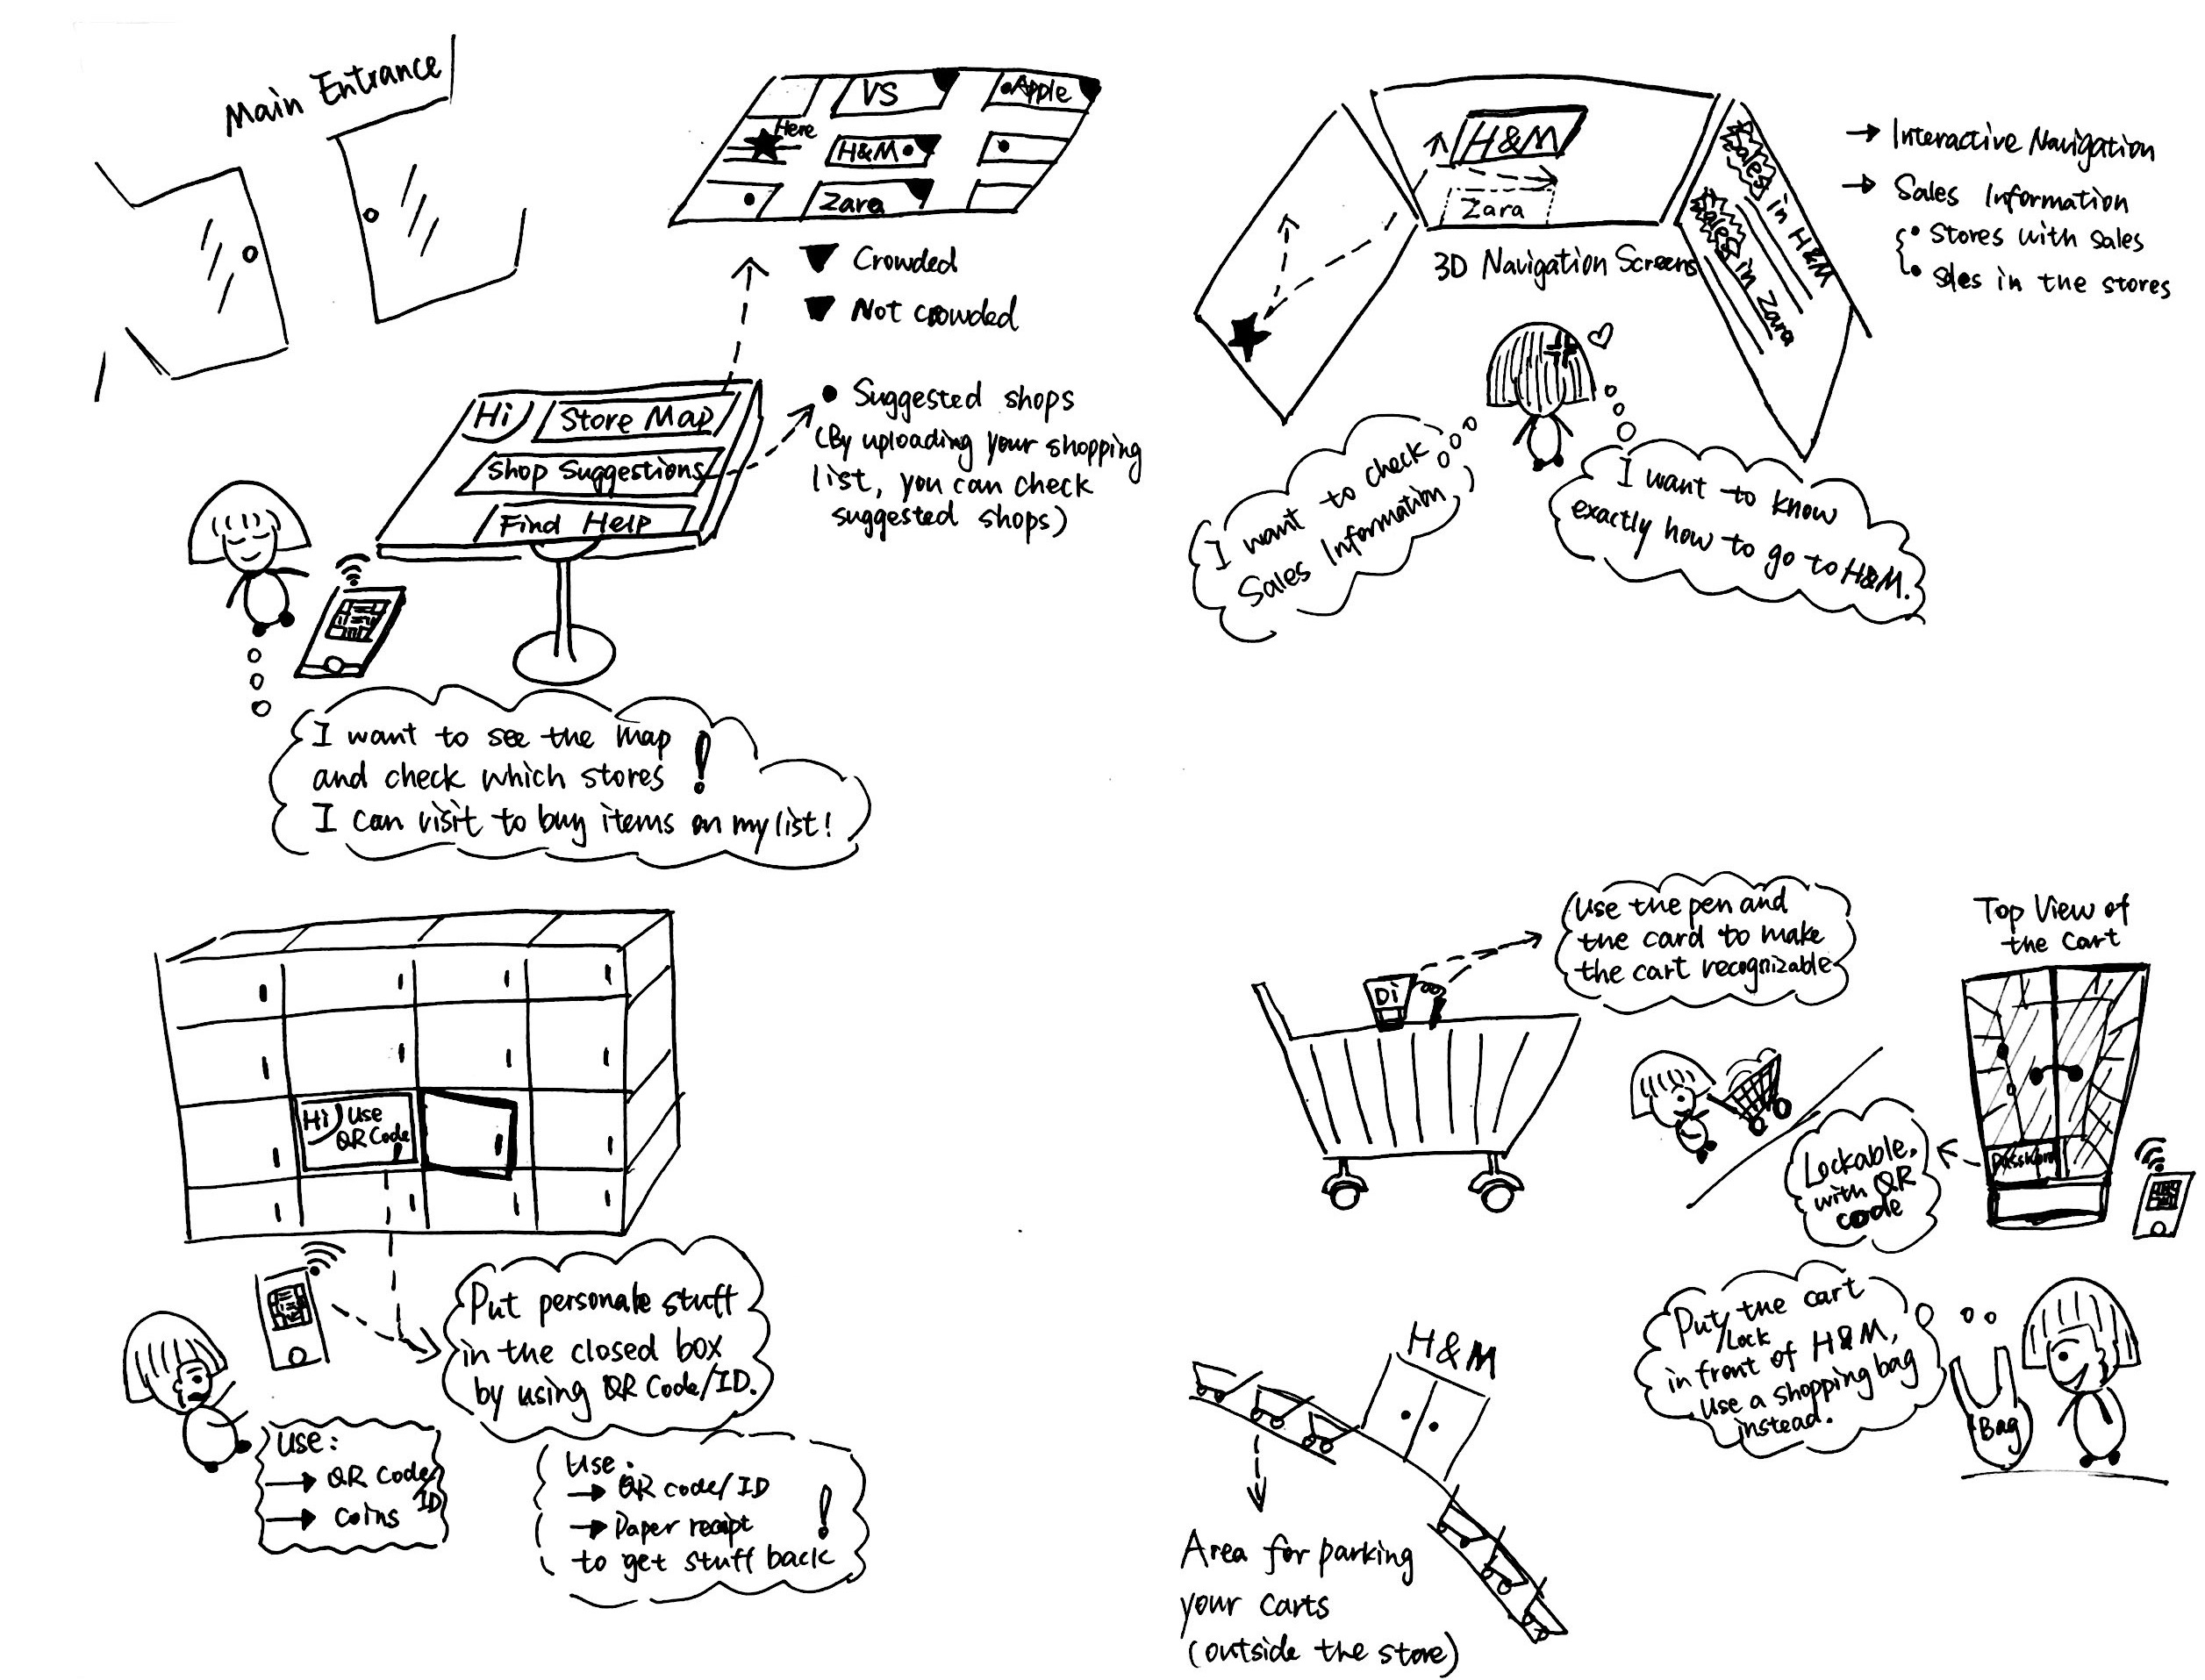 Main Entrance
VS
Apple
Here
H&M
Zara
Crowded
Not crowded
Suggested shops
(By uploading your shopping
list, you can check
suggested shops)
Hi
Store Map
Shop Suggestions
Find Help
I want to see the map
and check which stores !
I can visit to buy items on my list!
H&M
Zara
Sales in H&M
Sales in Zara
3D Navigation Screens
→ Interactive Navigation
→ Sales Information
• Stores with sales
• Sales in the stores
I want to check
Sales Information
I want to know
exactly how to go to H&M.
Hi Use
QR Code
!
Put personale stuff
in the closed box
by using QR Code/ID.
Use:
→ QR Code/
ID
→ Coins
Use:
→ QR code/ID
→ Paper recipt !
to get stuff back
Di
Use the pen and
the card to make
the cart recognizable
Top View of
the Cart
Password
Lockable.
with QR
code
Put/Lock the cart
in front of H&M,
use a shopping bag
instead.
Bag
H&M
Area for parking
your carts
(outside the store)